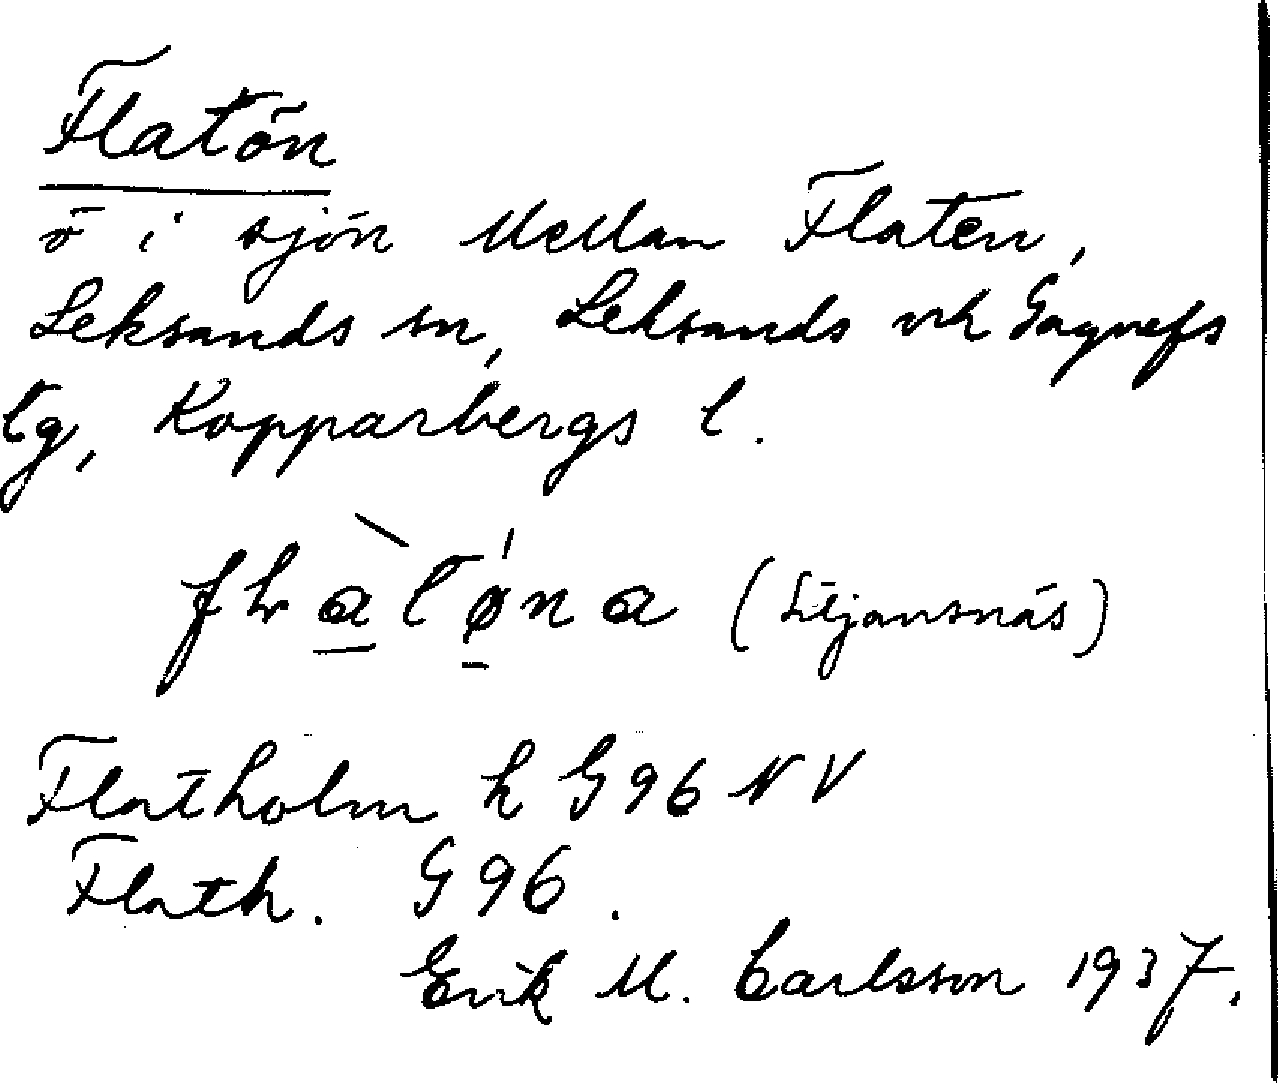 Flatön
ö i sjön Mellan Flaten,
Leksands sn, Leksands och Gagnefs
tg, Kopparbergs l.
(Siljansnäs)
Flatholm h G96 NV
Flath. G96.
Erik M. Carlsson 1937.